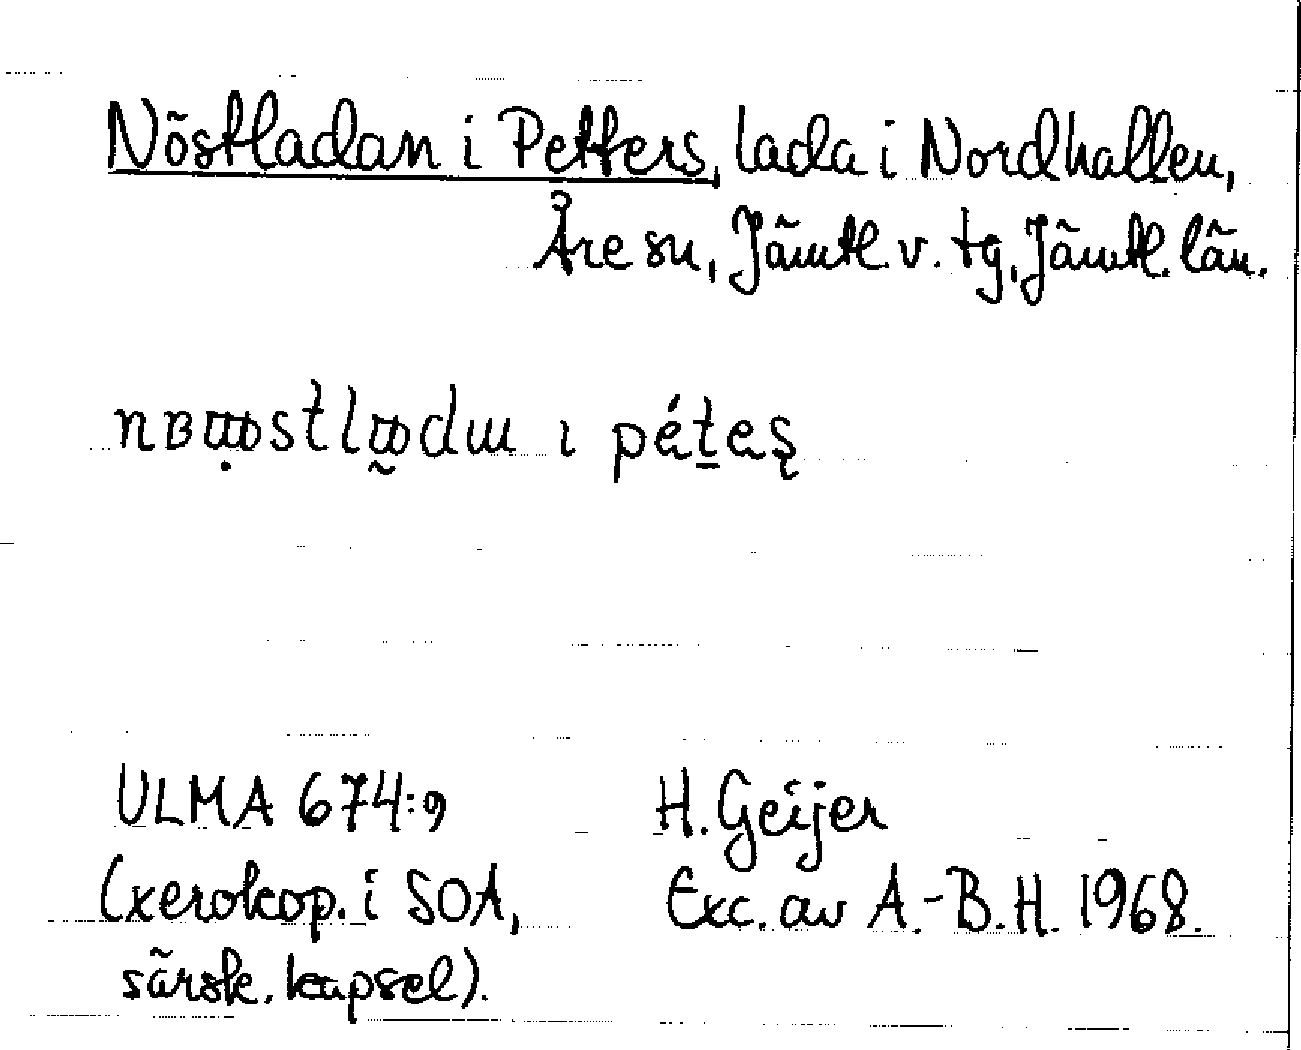 Nöstladan i Petters, lada i Nordhallen,
Åre sn, Jämtl. v. tg, Jämtl. län.
i
ULMA 674:9 H. Geijer
(xerokop. i SOA, Exc. av A.-B.H. 1968.
särsk. kapsel).